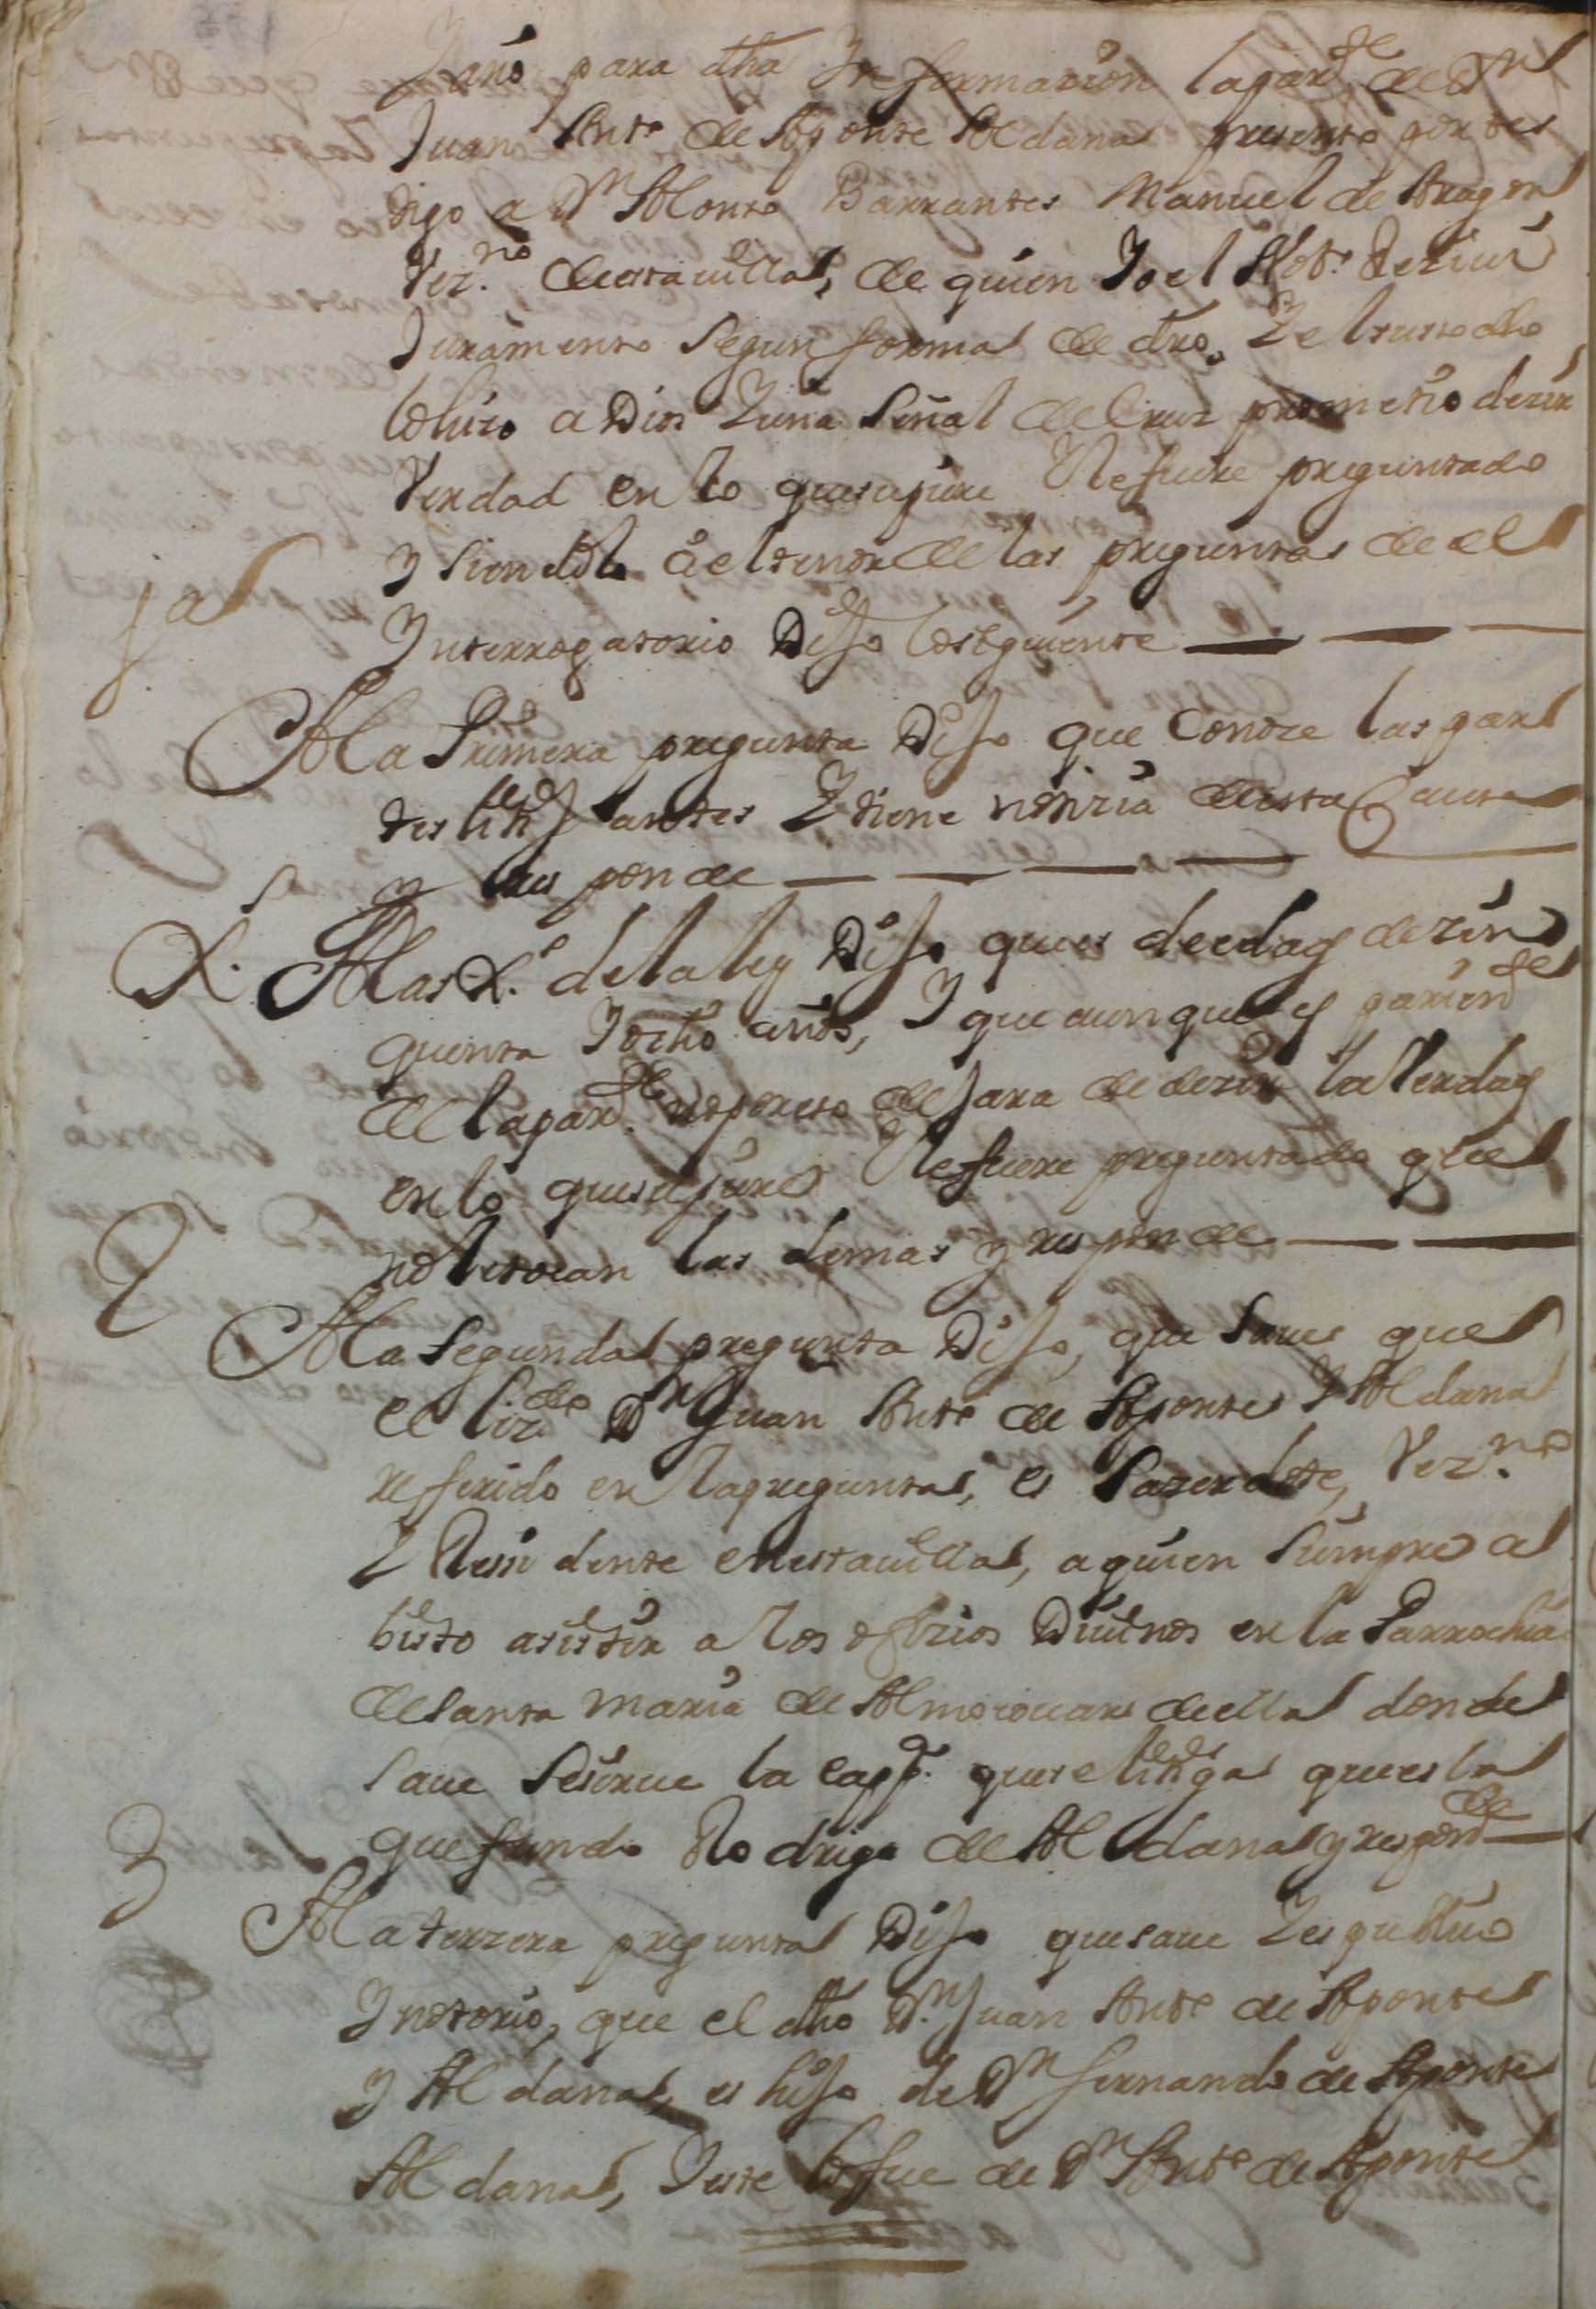 Y año para dha Informazion la parte de Dn
Juan Anto de Aponte Aldana presento por tes
tigo a Dn Alonso Barrantes Manuel de Aragon
Vezno de esta uilla, de quien Yo el Notº Reziui
Juramento Segun forma de dro. Y el suso dho
lo hizo a Dios Y una Señal de Cruz prometio dezir
Verdad en lo que supiere Y le fuere preguntado
y siendolo a el tenor de las preguntas de el
Interrogatorio Dijo lo siguiente
1a
A la Primera pregunta Dijo que Conoze las par
tes litigantes Y tiene notizia de esta Causa
y responde
G.
A las Gs. de la ley Dijo que es de edad de zin
quenta Y ocho años, Y que aunque es pariente
de la parte no por eso dejara de dezir la Verdad
en lo que supiere Y le fuere preguntado que
no le tocan las demas y responde
2
A la Segunda pregunta Dijo, que saue que
el Lizdo Dn Juan Anto de Aponte Y Aldana
referido en la pregunta, es Sazerdote, Vezno
Y Residente en esta uilla, a quien siempre a
bisto asistir a los ofizios Diuinos en la Parrochia
de Santa Maria de Almocouara de ella donde
saue se sirue la capp.a que se litiga que es la
que fundo Rodrigo de Aldana y responde
3
A la terzera pregunta Dijo que saue Y es publico
Y notorio, que el dho Dn Juan Anto de Aponte
Y Aldana, es hijo de Dn fernando de Aponte
Aldana, Y este lo fue de Dn Anto de Aponte